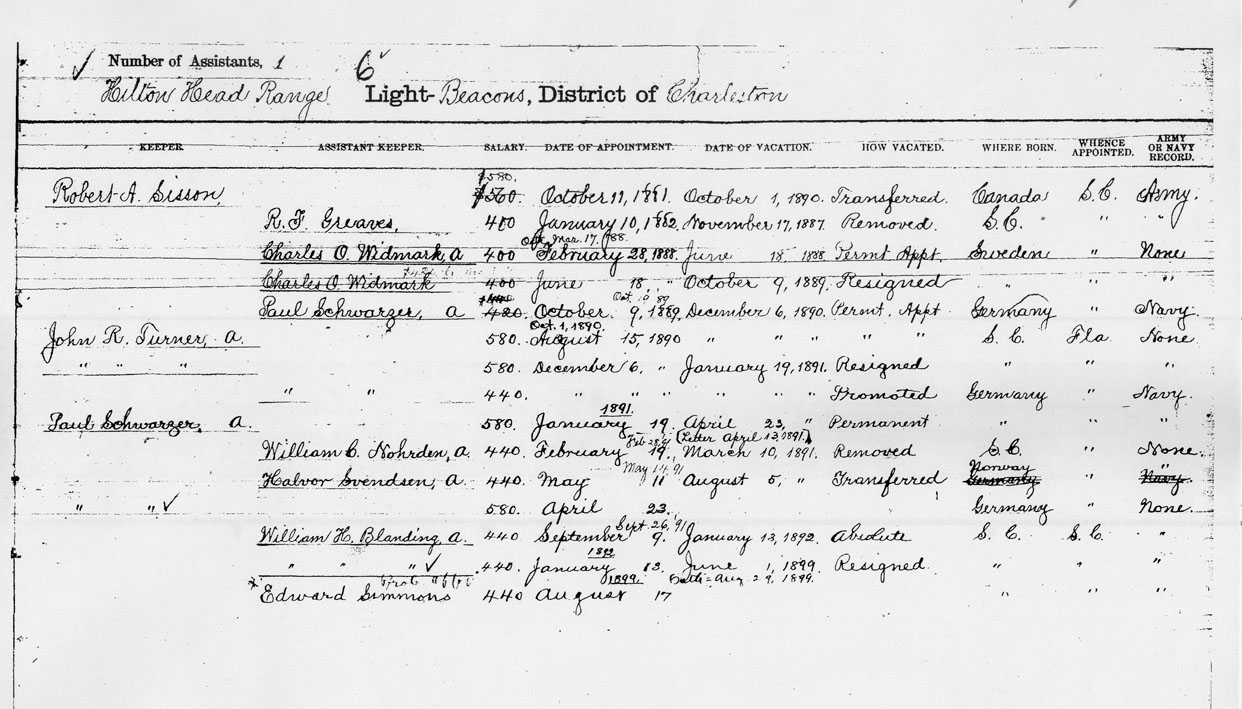 ✓ Number of Assistants, 1 6 ✓
Hilton Head Range Light-Beacons, District of Charleston
KEEPER. ASSISTANT KEEPER. SALARY. DATE OF APPOINTMENT. DATE OF VACATION. HOW VACATED. WHERE BORN. WHENCE APPOINTED. ARMY OR NAVY RECORD.
$580.
Robert A. Sisson, $560. October 11, 1881. October 1, 1890. Transferred. Canada S.C. Army.
R. F. Greaves, 400 January 10, 1882. November 17, 1887. Removed. S.C. " "
Mar. 17, '88.
Charles O. Widmark, A 400 February 28, 1888. June 18, 1888. Permt Appt. Sweden " None
Charles O. Widmark 400 June 18, " October 9, 1889. Resigned " " "
Oct. 19 89
Paul Schwarzer, A 420. October 9, 1889. December 6, 1890. Permt. Appt Germany " Navy.
Oct. 1, 1890.
John R. Turner, A. 580. August 15, 1890 " " " " " S.C. Fla None
" " " 580. December 6, " January 19, 1891. Resigned " " "
" " 440. " " " " " " Promoted Germany " Navy.
1891.
Paul Schwarzer, A. 580. January 19. April 23, " Permanent " " "
Feb 28 91 (Letter April 13, 1891.)
William C. Nohrden, A. 440. February 19. March 10, 1891. Removed S.C. " None
May 14. 91 Norway "
Halvor Svendsen, A. 440. May 11 August 5, " Transferred Germany " Navy.
" " ✓ 580. April 23. Germany " None.
Sept 26, 91
William H. Blanding, A. 440 September 9. January 13, 1892. Absolute S.C. S.C. "
1892
" " " ✓ 440. January 13. June 1, 1899. Resigned. " " "
1899. Aug. 29, 1899.
* Edward Simmons 440 August 17 " " "